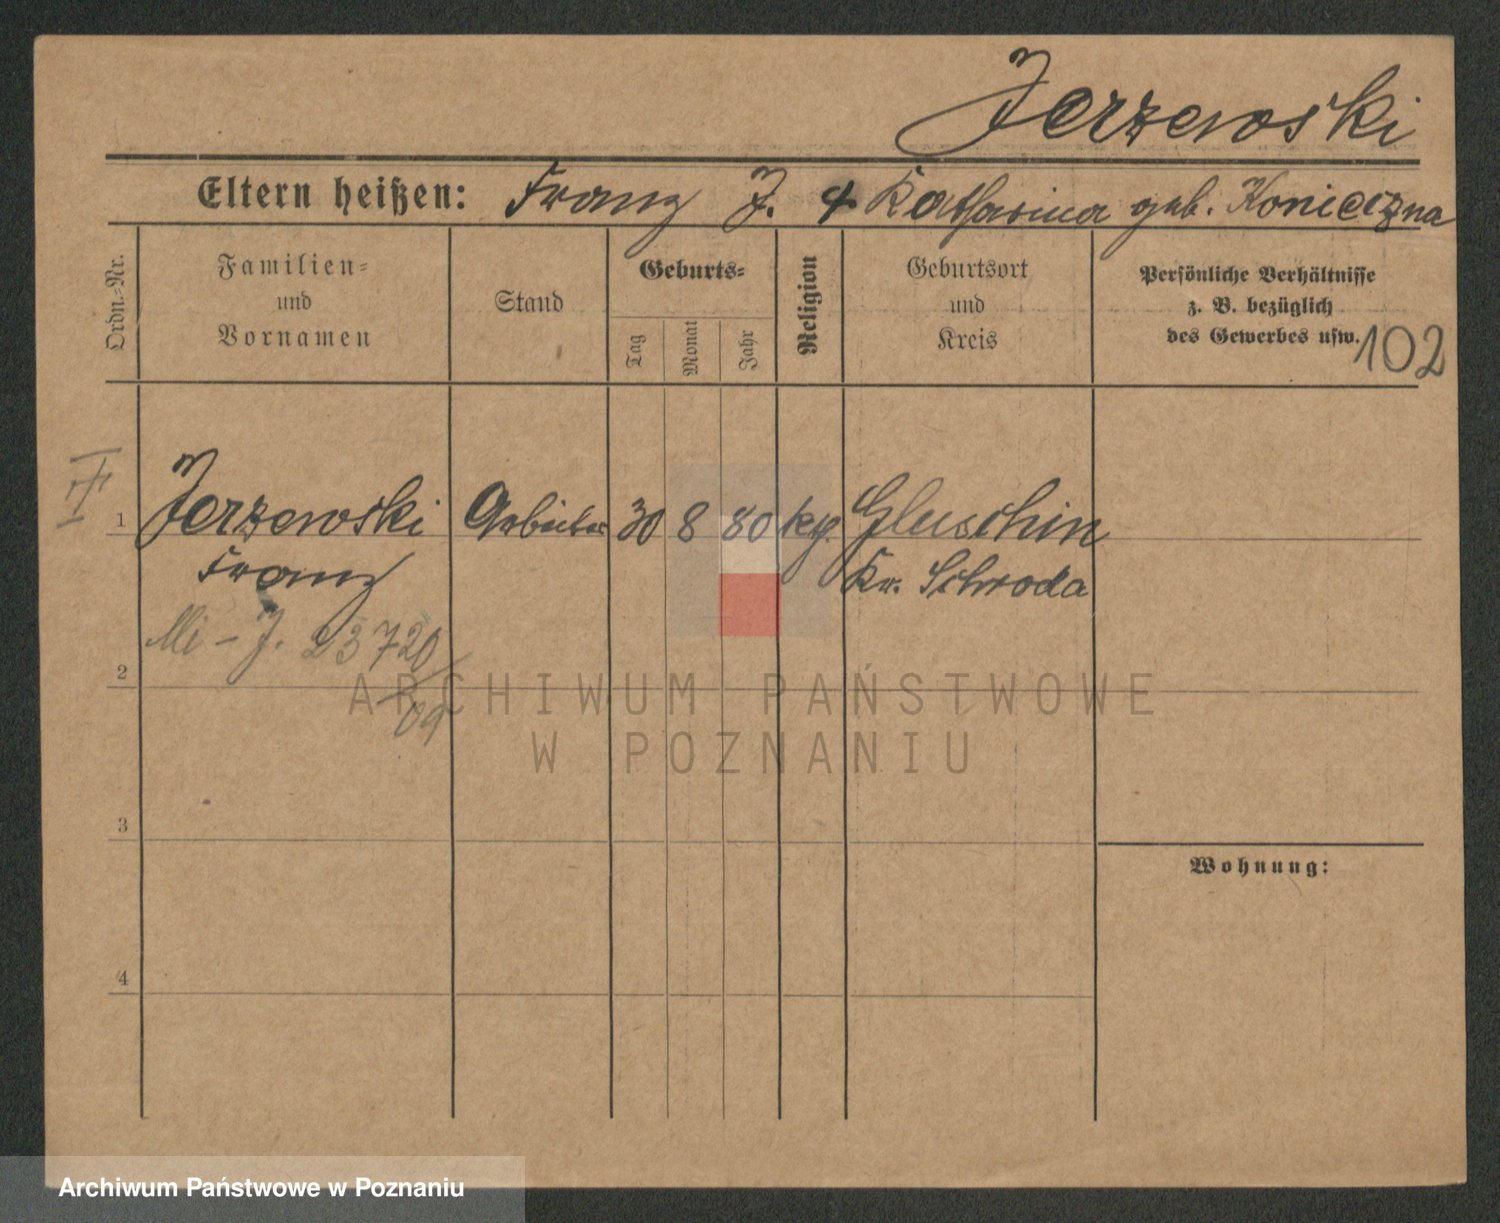 Jerzewski
Eltern heißen: Franz J. & Katharina geb. Konieczna
Ordn.-Nr.
Familien-
und
Vornamen
Stand
Geburts-
Tag
Monat
Jahr
Religion
Geburtsort
und
Kreis
Persönliche Verhältnisse
z. B. bezüglich
des Gewerbes usw.
102
1 Jerzewski Arbeiter 30 8 80 Gluschin
Franz Kr. Schroda
Mi - J. 23720
/09
2
ARCHIWUM PAŃSTWOWE
W POZNANIU
3
Wohnung:
4
Archiwum Państwowe w Poznaniu